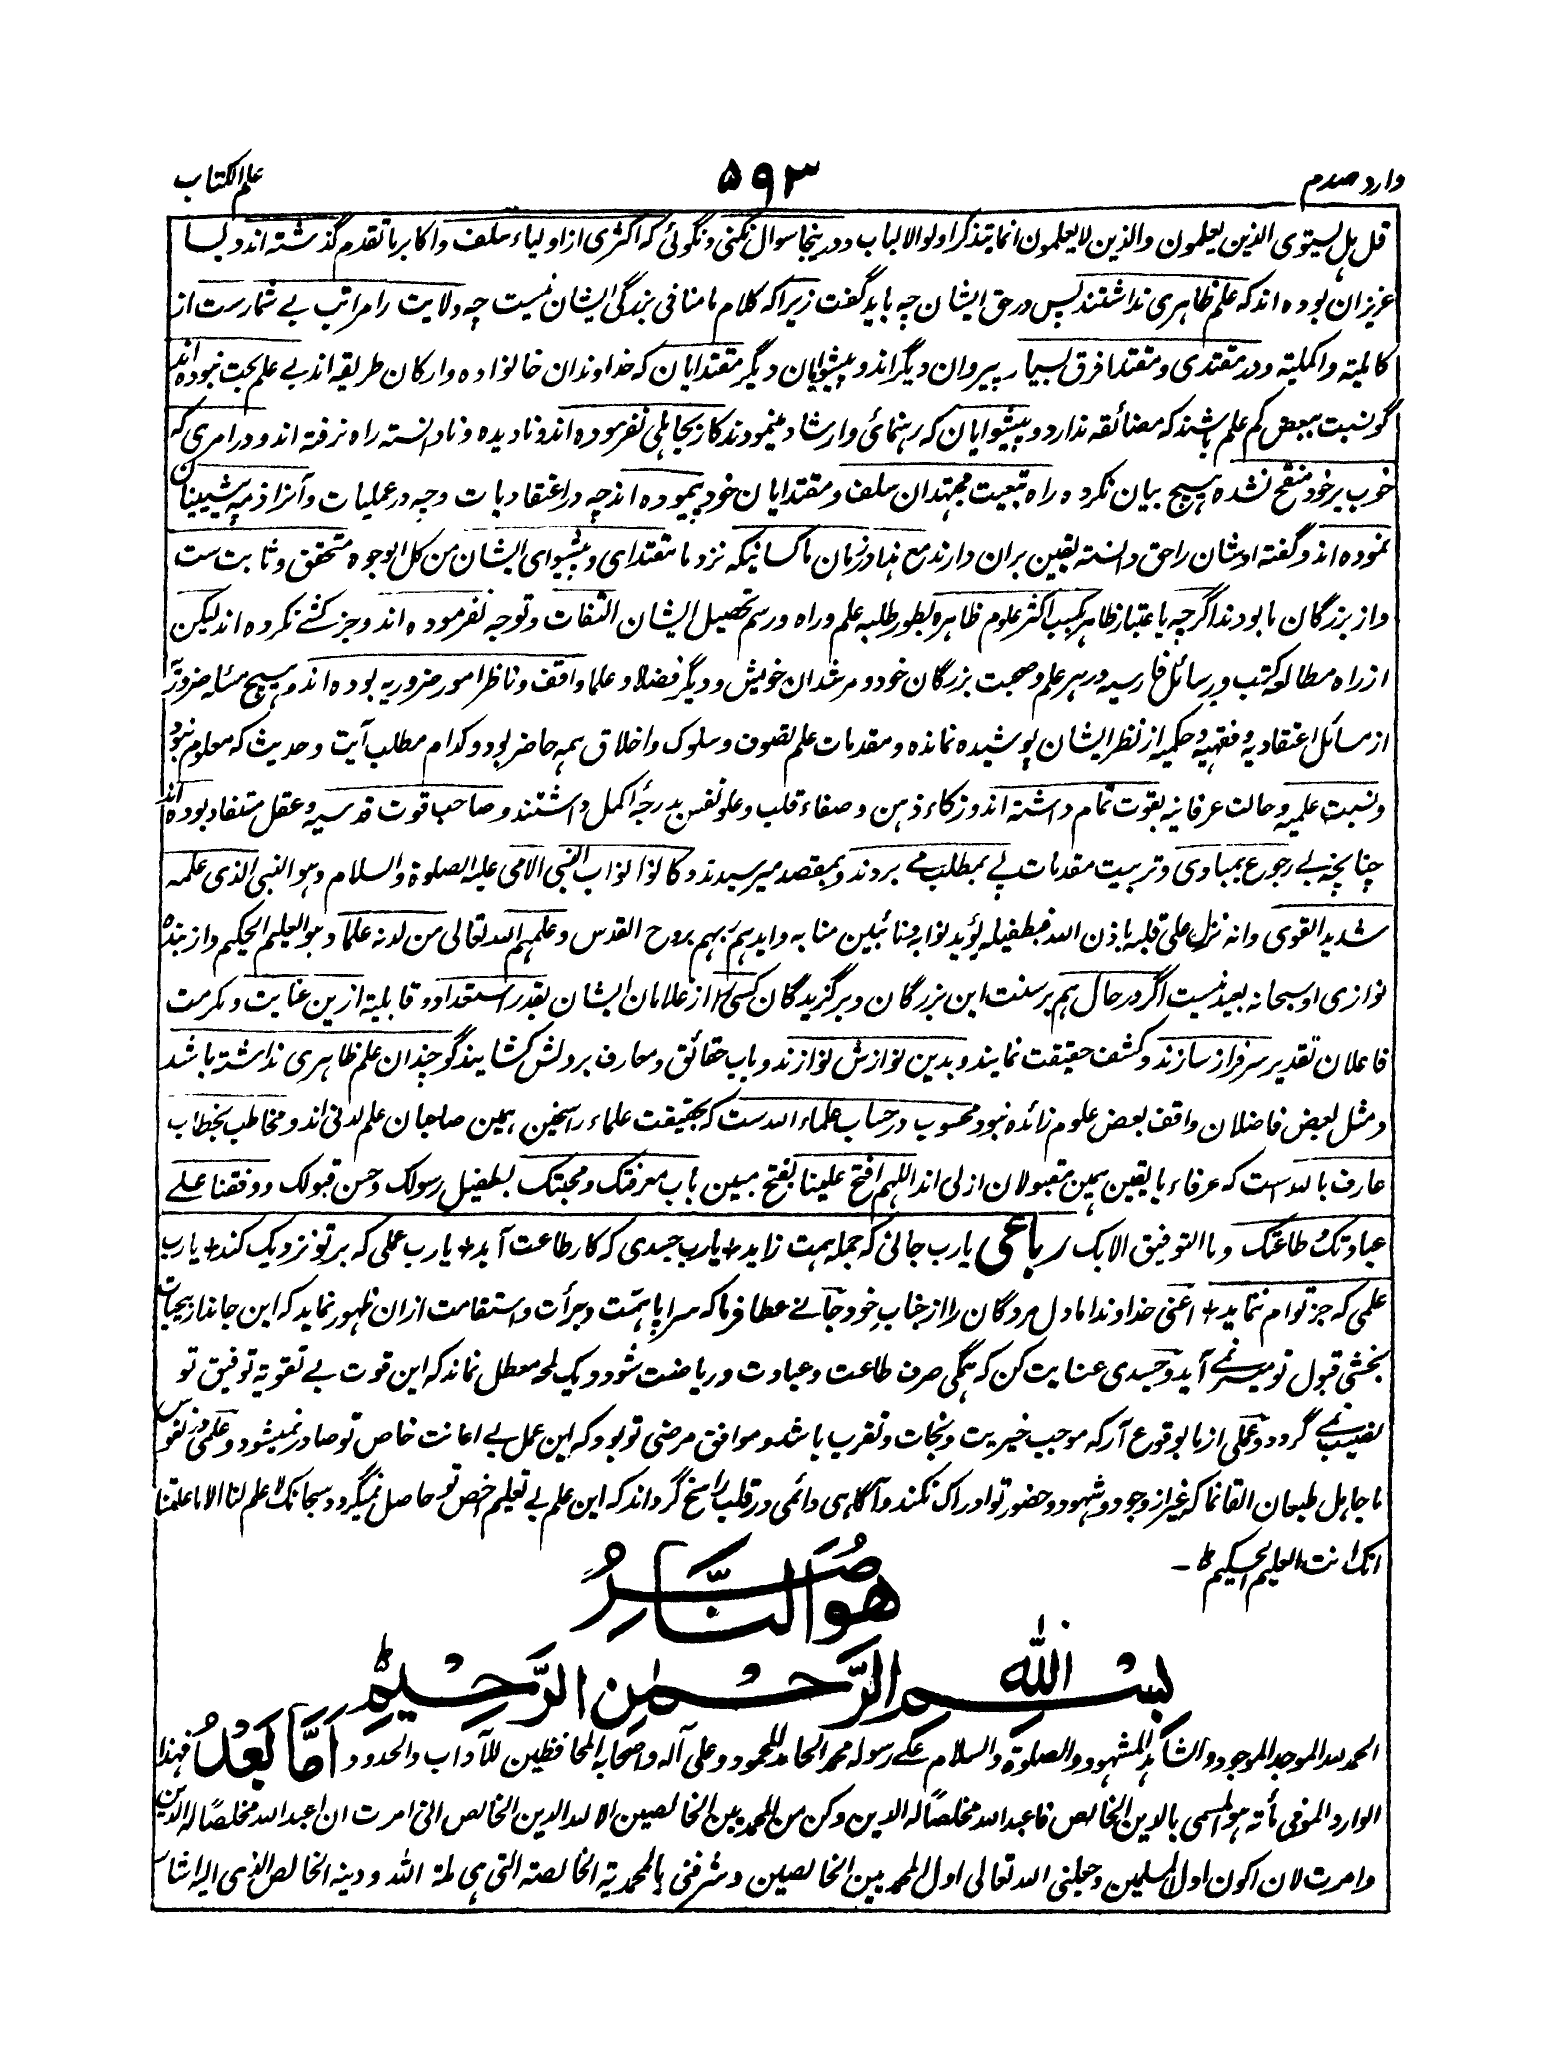 وارد صدم
۵۹۳
علم الکتاب
قل ہل یستوی الذین یعلمون والذین لا یعلمون انما یتذکر اولو الالباب و درینجا سوال نکنی و نگوئی کہ اکثری از اولیاء سلف و اکابر ما تقدم گذشتہ اند و بسا
عزیزان بودہ اند کہ علم ظاہری نداشتند پس در حق ایشان چہ باید گفت زیراکہ کلام ما منافی بزرگی ایشان نیست چہ ولایت را مراتب بے شمارست از
کاملیتہ و اکملیتہ و در مقتدی و مقتدا فرق بسیار پیروان دیگر اند و پیشوایان دیگر مقتدایان کہ خداوندان خانوادہ و ارکان طریقہ اند بے علم بحت نبودہ اند
گو نسبت ببعض کم علم باشند کہ مضائقہ ندارد و پیشوایان کہ رہنمائی و ارشاد مینمودند کار بجاہلی نفرمودہ اند و نادیدہ و نادانستہ راہ نرفتہ اند و در امری کہ
خوب بر خود منقح نشدہ ہیچ بیان نکردہ راہ تبعیت مجتہدان سلف و مقتدایان خود پیمودہ اند چہ در اعتقادیات و چہ در عملیات و آنرا ذمہ پیشینیان
نمودہ اند و گفتہ اوشان را حق دانستہ یقین بران دارند مع ہذا در زمان ما کسانیکہ نزد ما مقتدای و پیشوای ایشان من کل الوجوہ متحقق و ثابت ست
و از بزرگان ما بودند اگرچہ باعتبار ظاہر بکسب اکثر علوم ظاہرہ بطور طلبہ علم و راہ و رسم تحصیل ایشان التفات و توجہ نفرمودہ اند و جز کشے نکردہ اند لیکن
از راہ مطالعہ کتب و رسائل فارسیہ در ہر علم و صحبت بزرگان خود و مرشدان خویش و دیگر فضلا و علما واقف و ناظر امور ضروریہ بودہ اند و ہیچ مسئلہ ضروریہ
از مسائل اعتقادیہ و فقہیہ و حکمیہ از نظر ایشان پوشیدہ نماندہ و مقدمات علم تصوف و سلوک و اخلاق ہمہ حاضر بود و کدام مطلب آیت و حدیث کہ معلوم نبود
و نسبت علمیہ و حالت عرفانیہ بقوت تمام داشتہ اند و زکاء ذہن و صفاء قلب و علو نفس بدرجۂ اکمل داشتند و صاحب قوت قدسیہ و عقل مستفاد بودہ اند
چنانچہ بے رجوع بمبادی و تربیت مقدمات پے بمطلب مے بردند و بمقصد میرسیدند و کانوا نواب النبی الامی علیہ الصلوۃ والسلام و ہو النبی الذی علمہ
شدید القوی وانہ نزل علی قلبہ باذن اللہ فبطفیلہ یؤید نوابہ و نائبین منابہ وایدہم ربہم بروح القدس و علمہم اللہ تعالی من لدنہ علما و ہو العلیم الحکیم و از بندہ
نوازی او سبحانہ بعید نیست اگر در حال ہم بر سنت این بزرگان و برگزیدگان کسی را از غلامان ایشان بقدر استعداد و قابلیۃ ازین عنایت و مکرمت
فاعلان تقدیر سرفراز سازند و کشف حقیقت نمایند و بدین نوازش نوازند و باب حقائق و معارف بر دلش کشایند گو چندان علم ظاہری نداشتہ باشد
و مثل بعض فاضلان واقف بعض علوم زائدہ نبود محسوب در حساب علماء اللہ ست کہ بحقیقت علماء راسخین ہمین صاحبان علم لدنی اند و مخاطب بخطاب
عارف باللہ است کہ عرفاء بالیقین ہمین مقبولان ازلی اند اللہم افتح علینا بفتح مبین باب معرفتک و محبتک بطفیل رسولک و حسن قبولک و وفقنا علے
عبادتک و طاعتک و ما التوفیق الا بک رباعی یارب جانی کہ جملہ ہمت زاید + یارب جسدی کہ کار طاعت آید + یارب عملی کہ بر تو نزدیک کند + یارب
علمی کہ جز توام ننماید + اعنی خداوندا ما دل مردگان را از جناب خود جانے عطا فرما کہ سراپا ہمت و جرأت و استقامت ازان ظہور نماید کہ این جاندار بحیات
بخشی قبول تو میسر نمے آید و جسدی عنایت کن کہ ہمگی صرف طاعت و عبادت و ریاضت شود و یک لمحہ معطل نماند کہ این قوت بے تقویۃ توفیق تو
نصیب نمے گردد و عملی از ما بوقوع آر کہ موجب خیریت و نجات و تقرب باشد و موافق مرضی تو بود کہ این عمل بے اعانت خاص تو صادر نمیشود و علمی در نفوس
ما جاہل طبعان القا نما کہ غیر از وجود و شہود و حضور تو ادراک نکند و آگاہی دائمی در قلب راسخ گرداند کہ این علم بے تعلیم اخص تو حاصل نمیگردد سبحانک لا علم لنا الا ما علمتنا
انک انت العلیم الحکیم ط۔
ھو الناصر
بسم اللہ الرحمن الرحیم ط
الحمد للہ الموجد الموجود والشاہد المشہود والصلوۃ والسلام علے رسولہ محمد الحامد المحمود وعلی آلہ واصحابہ المحافظین للآداب والحدود اما بعد فہذا
الوارد الموفی مأتہ ہو المسمی بالدین الخالص فاعبد اللہ مخلصا لہ الدین وکن من المحمدیین الخالصین الا للہ الدین الخالص انی امرت ان اعبد اللہ مخلصا لہ الدین
وامرت لان اکون اول المسلمین وجعلنی اللہ تعالی اول المحمدیین الخالصین وشرفنی بالمحمدیۃ الخالصۃ التی ہی ملۃ اللہ ودینہ الخالص الذی الیہ اشار